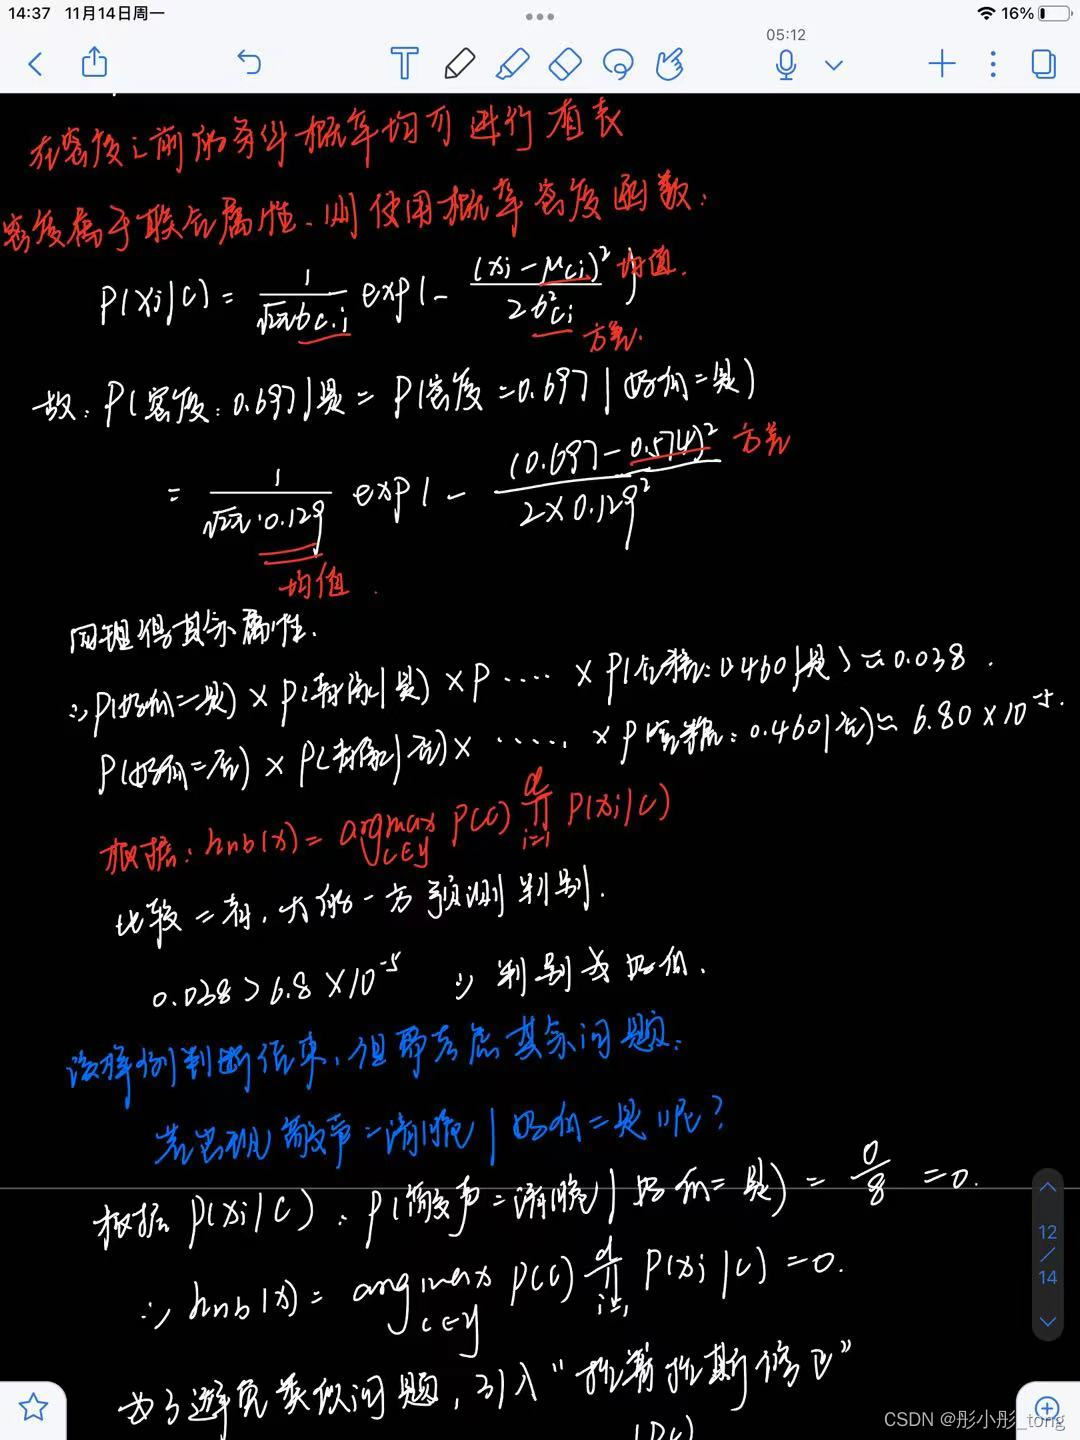 14:37 11月14日周一 16%
05:12
T
在密度之前的条件概率均可进行查表
密度属于联合属性、则使用概率密度函数:
P(xi|c) = 1/√2π σc,i exp(- (xi - μc,i)²/2σ²c,i) 均值.
方差.
故: P(密度:0.697|是 = P(密度=0.697|好瓜=是)
= 1/√2π·0.129 exp(- (0.697-0.574)²/2×0.129² 方差
均值.
同理得其余属性.
∴ P(好瓜=是) × P(青绿|是) × P ···· × P(含糖:0.460|是) ≈ 0.038.
P(好瓜=否) × P(青绿|否) × ····· × P(含糖:0.460|否) ≈ 6.80×10⁻⁵.
根据: hnb(x) = argmax c∈y P(c) d∏i=1 P(xi|c)
比较二者, 大的一方预测判别.
0.038 > 6.8×10⁻⁵ ∴ 判别为好瓜.
该样例判断结束, 但要考虑其余问题:
若出现敲声=清脆|好瓜=是呢?
根据 P(xi|c): P(敲声=清脆|好瓜=是) = 0/8 = 0.
∴ hnb(x) = argmax c∈y P(c) d∏i=1 P(xi|c) = 0.
12
/
14
为了避免类似问题, 引入"拉普拉斯修正"
CSDN @彤小彤_tong